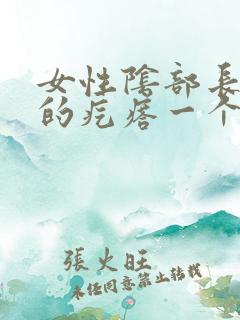 女性陰部長
的疙瘩一个
張火旺
未经同意禁止转载